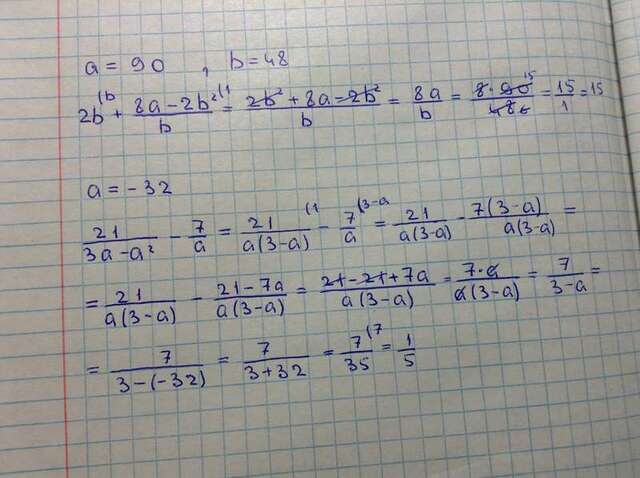 a = 90 , b = 48
2b^(b + (8a - 2b²)/b^(1 = (2b² + 8a - 2b²)/b = 8a/b = (8·90)/48 ^15 ₆ = 15/1 = 15
a = -32
21/(3a - a²) - 7/a = 21/(a(3-a))^(1 - 7/a^(3-a = 21/(a(3-a)) - 7(3-a)/(a(3-a)) =
= 21/(a(3-a)) - (21-7a)/(a(3-a)) = (21-21+7a)/(a(3-a)) = (7·a)/(a(3-a)) = 7/(3-a) =
= 7/(3-(-32)) = 7/(3+32) = 7/35^(7 = 1/5